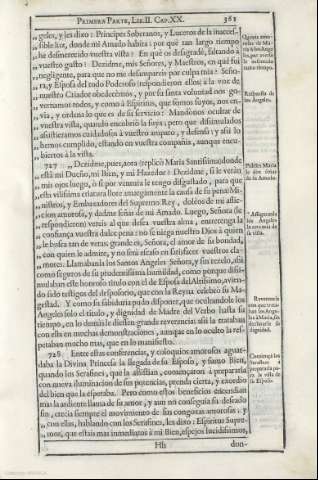 PRIMERA PARTE, LIB. II. CAP. XX. 361
geles, y les dixo: Principes Soberanos, y Luceros de la inacces-
sible luz, donde mi Amado habita: por què tan largo tiempo
he desmerecido vuestra vista? En què os desagradè, faltando à
vuestro gusto? Dezidme, mis Señores, y Maestros, en què fui
negligente, para que no me desamparéis por culpa mia? Seño-
ra, y Esposa del todo Poderoso (respondieron ellos) à la voz de
nuestro Criador obedecemos, y por su santa voluntad nos go-
vernamos todos, y como à Espiritus, que somos suyos, nos en-
via, y ordena lo que es de su servicio: Mandònos ocultar de
vuestra vista, quando encubriò la suya: pero que dissimulados
assistieramos cuidadosos à vuestro amparo, y defensa: y assi lo
hemos cumplido, estando en vuestra compañia, aunque encu-
biertos à la vista.
727 Dezidme, pues, aora (replicò Maria Santissima) donde
està mi Dueño, mi Bien, y mi Hazedor? Dezidme, si le veràn
mis ojos luego, ò si por ventura le tengo disgustado, para que
esta vilissima criatura llore amargamente la causa de su pena? Mi-
nistros, y Embaxadores del Supremo Rey, doleos de mi aflic-
cion amorosa, y dadme señas de mi Amado. Luego, Señora (le
respondieron) vereis al que desea vuestra alma, entretenga la
confiança vuestra dulce pena: no se niega nuestro Dios à quien
le busca tan de veras: grande es, Señora, el amor de su bondad,
con quien le admite, y no serà escaso en satisfacer vuestros cla-
mores. Llamabanla los Santos Angeles Señora, y sin rezelo, assi
como seguros de su prudentissima humildad, como porque dissi-
mulaban este honroso titulo con el de Esposa del Altissimo, avien-
do sido testigos del desposorio, que con la Reyna celebrò su Ma-
gestad. Y como su sabiduria pudo disponer, que ocultandole los
Angeles solo el titulo, y dignidad de Madre del Verbo hasta su
tiempo, en lo demàs le diessen grande reverencia: assi la trataban
con ella en muchas demonstraciones, aunque en lo oculto la res-
petaban mucho mas, que en lo manifiesto.
728 Entre estas conferencias, y coloquios amorosos aguar-
daba la Divina Princesa la llegada de su Esposo, y sumo Bien,
quando los Serafines, que la assistian, començaron à prepararla
con nueva iluminacion de sus potencias, prenda cierta, y exordio
del bien que la esperaba. Pero como estos beneficios encendian
mas la ardiente llama de su amor, y aun no conseguia su deseado
fin, crecia siempre el movimiento de sus congojas amorosas: y
con ellas, hablando con los Serafines, les dixo: Espiritus Supre-
mos, que estais mas immediatos à mi Bien, espejos lucidissimos,
Hh don-
Respuesta de
los Angeles.
Pideles Maria
le den señas
de su Amado.